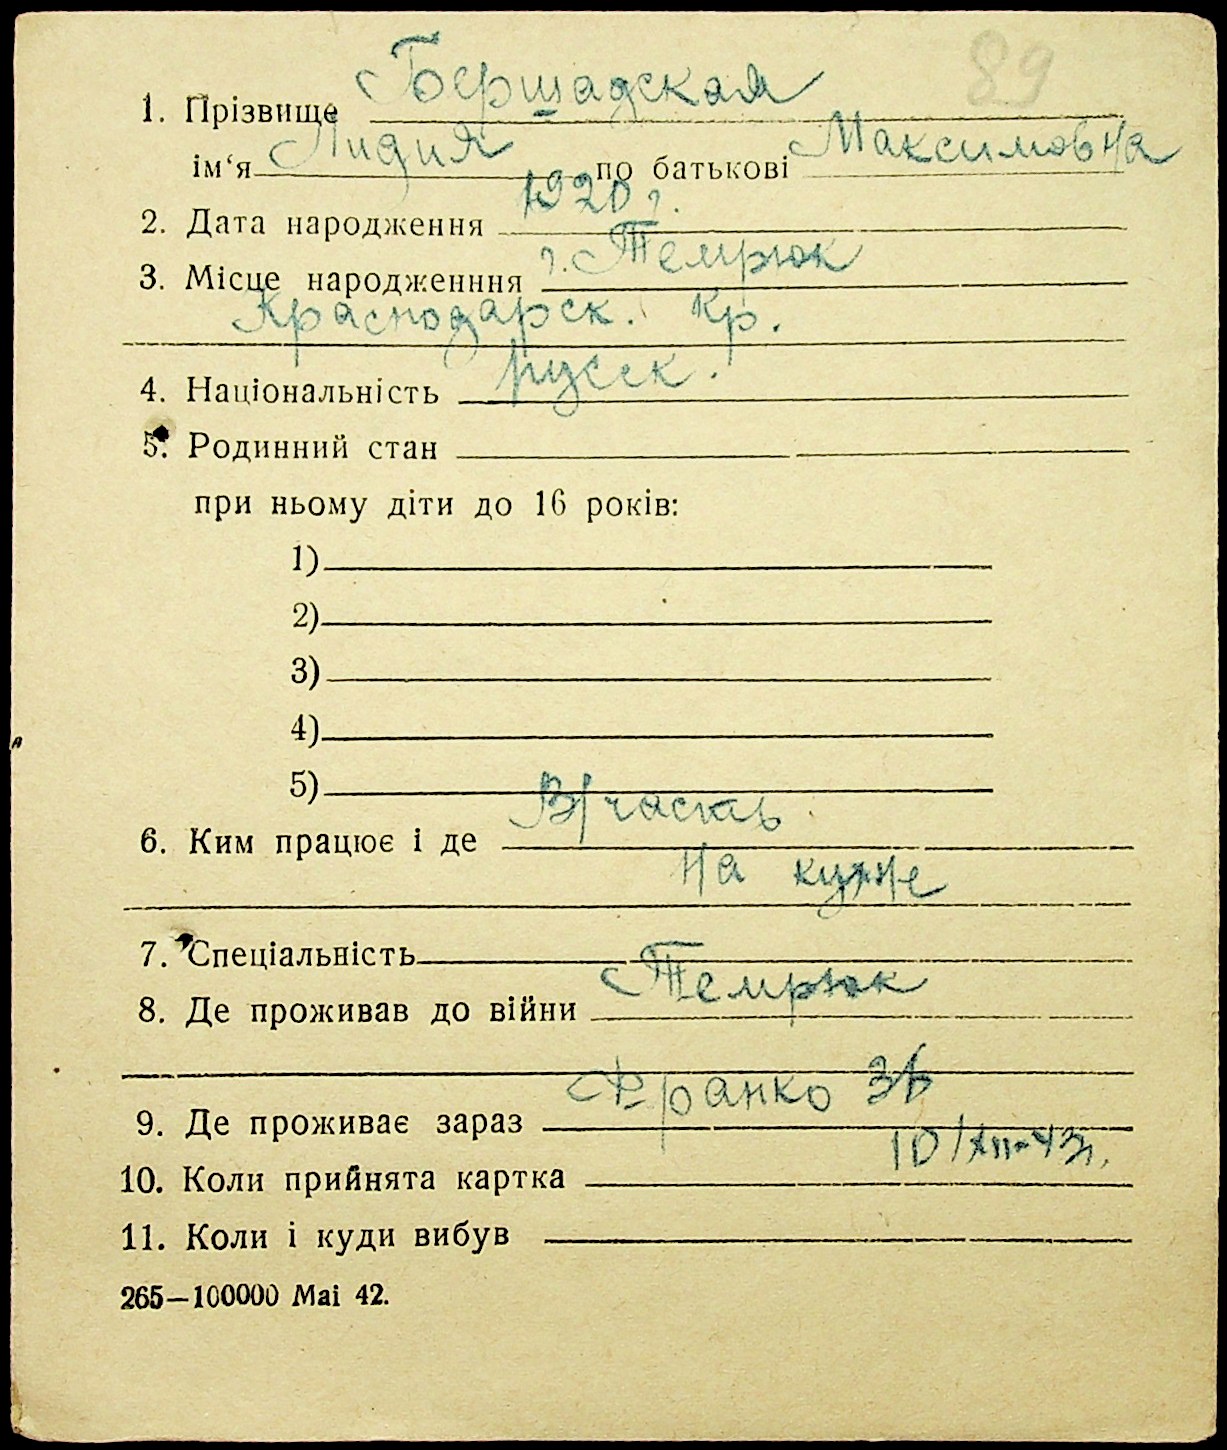 89
1. Прізвище Бершадская
ім‘я Лидия по батькові Максимовна
2. Дата народження 1920 г.
3. Місце народженння г. Темрюк
Краснодарск. кр.
4. Національність русск.
5. Родинний стан
при ньому діти до 16 років:
1)
2)
3)
4)
5)
6. Ким працює і де В/часть
на кухне
7. Спеціальність
8. Де проживав до війни Темрюк
9. Де проживає зараз Франко
10. Коли прийнята картка 10/XII-43г.
11. Коли і куди вибув
265—100000 Mai 42.